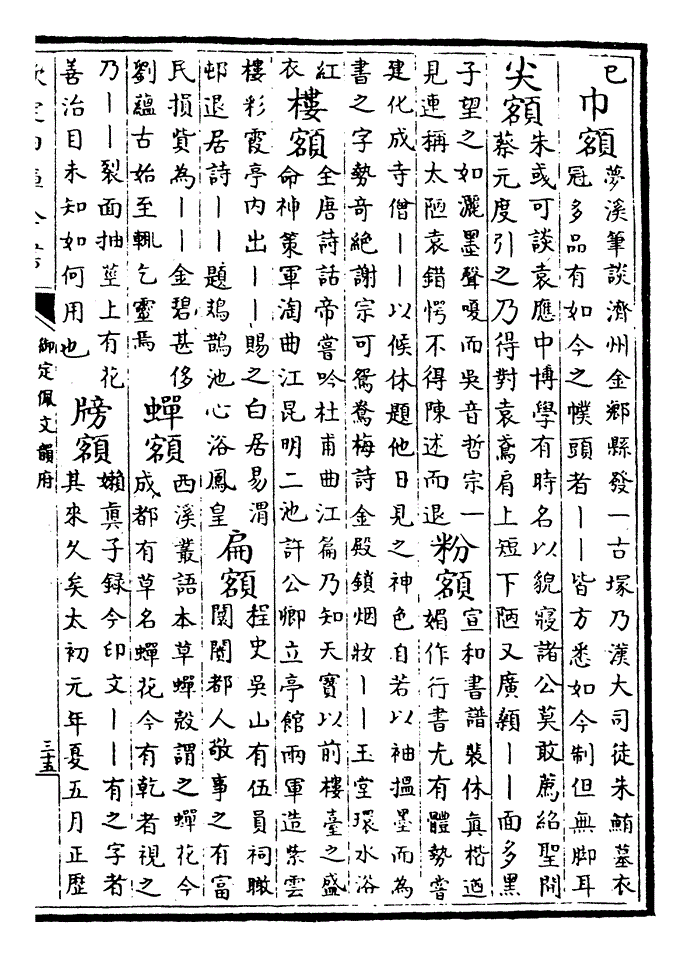 已
巾額
夢溪筆談濟州金鄉縣發一古塚乃漢大司徒朱鮪墓衣
冠多品有如今之幞頭者——皆方悉如今制但無脚耳
尖額
朱彧可談袁應中博學有時名以貌寢諸公莫敢薦紹聖間
蔡元度引之乃得對袁鳶肩上短下陋又廣顙——面多黑
子望之如灑墨聲嗄而吳音哲宗一
見連稱太陋袁錯愕不得陳述而退
粉額
宣和書譜裴休真楷遒
媚作行書尤有體勢嘗
建化成寺僧——以候休題他日見之神色自若以袖搵墨而為
書之字勢奇絕謝宗可鴛鴦梅詩金殿鎖烟妝——玉堂環水浴
紅
衣
樓額
全唐詩話帝嘗吟杜甫曲江篇乃知天寶以前樓臺之盛
命神策軍淘曲江昆明二池許公卿立亭館兩軍造紫雲
樓彩霞亭内出——賜之白居易渭
邨退居詩——題鵁鵲池心浴鳳皇
扁額
桯史吳山有伍員祠瞰
闤闠都人敬事之有富
民損貲為——金碧甚侈
劉蘊古始至輒乞靈焉
蟬額
西溪叢語本草蟬殼謂之蟬花今
成都有草名蟬花今有乾者視之
乃——裂面抽莖上有花
善治目未知如何用也
牓額
嬾真子録今印文——有之字者
其來久矣太初元年夏五月正歴
欽定四庫全書
御定佩文韻府
三十五